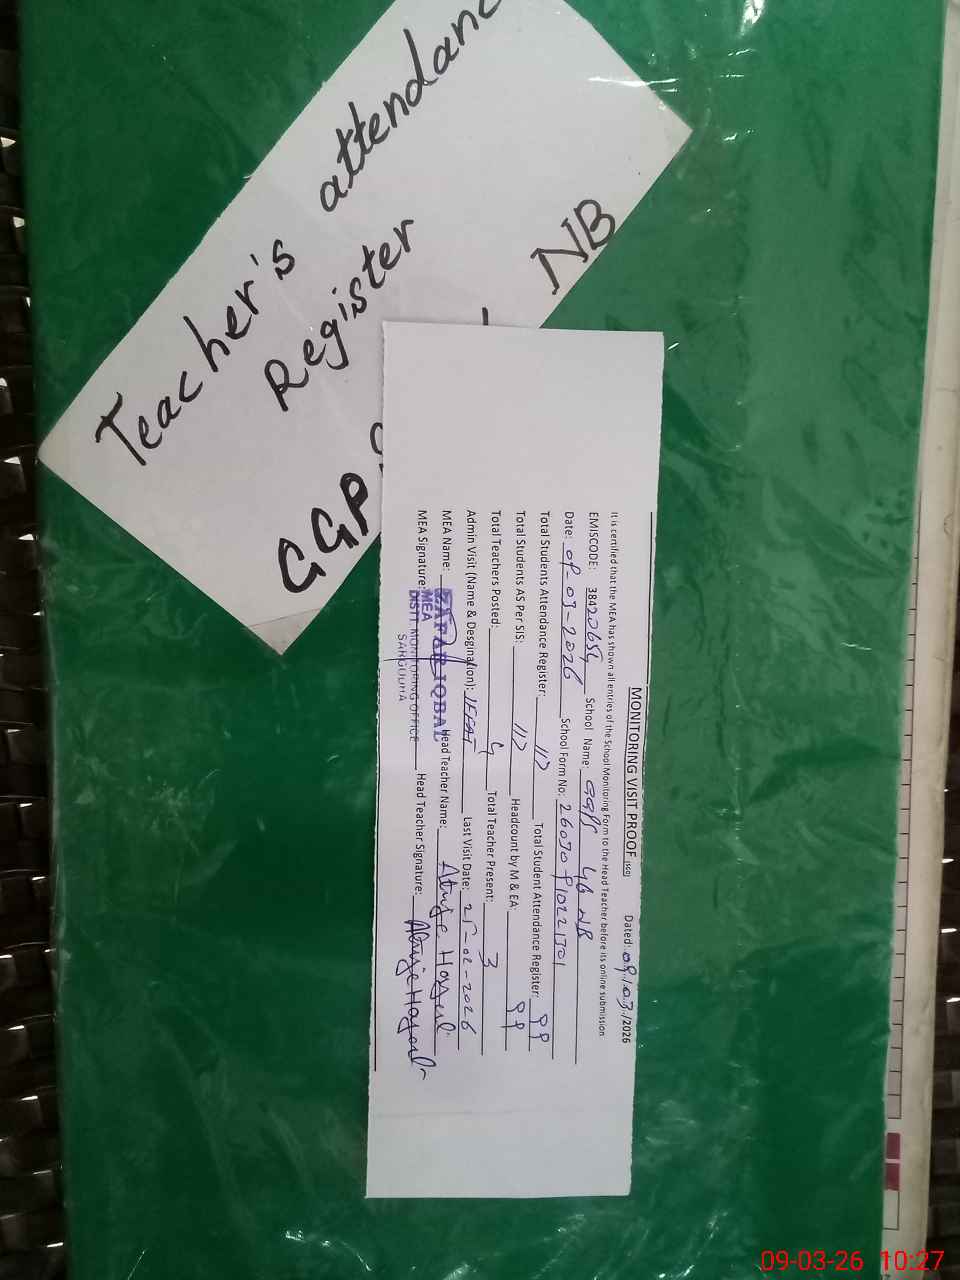 Teacher's attendanc
Register
GGPS
NB
MONITORING VISIT PROOF (SCO) Dated: 09/03/2026
It is certified that the MEA has shown all entries of the School Monitoring Form to the Head Teacher before its online submission
EMISCODE: 38420654 School Name: GGPS 46 NB
Date: 09-03-2026 School Form No: 26030910221301
Total Students Attendance Register: 117 Total Student Attendance Register: 99
Total Students AS Per SIS: 117 Headcount by M & EA: 99
Total Teachers Posted: 4 Total Teacher Present: 3
Admin Visit (Name & Desgination): Last Visit Date: 25-02-2026
MEA Name: ZAFAR IQBAL Head Teacher Name:
MEA Signature: Head Teacher Signature:
MEA
DISTT. MONITORING OFFICE
SARGODHA
09-03-26 10:27